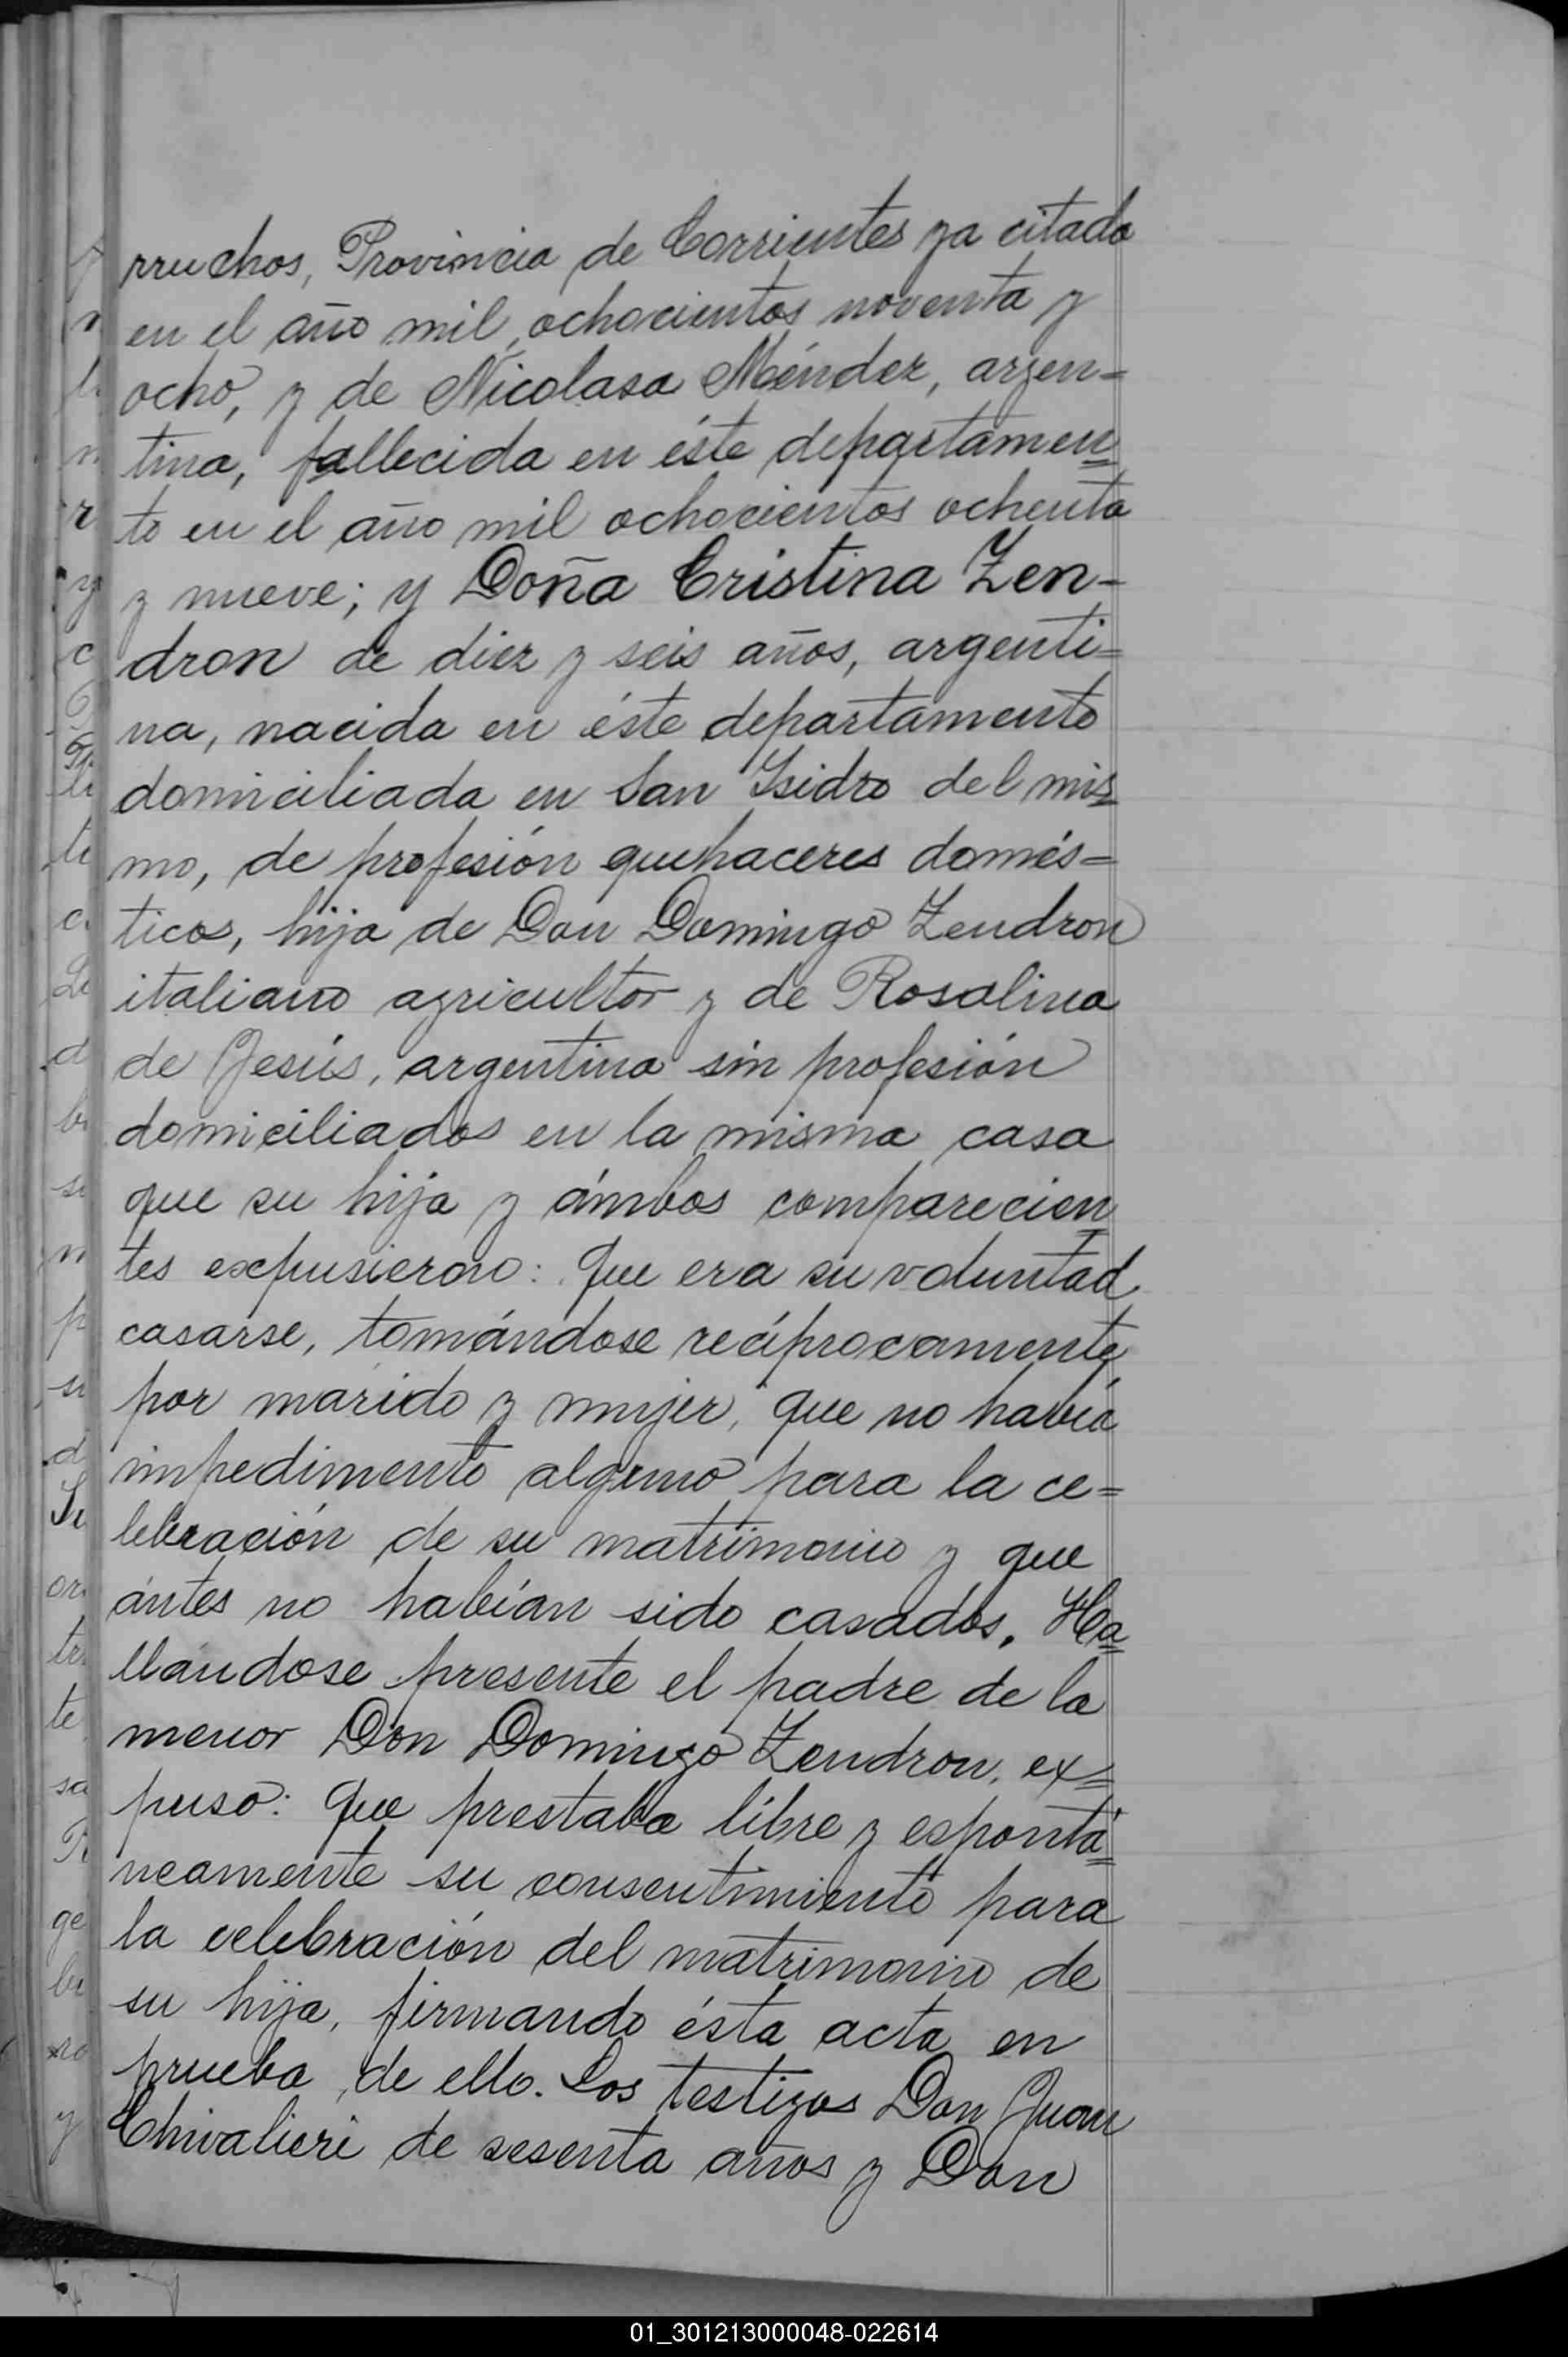 rruchos, Provincia de Corrientes ya citada
en el año mil ochocientos noventa y
ocho, y de Nicolasa Méndez, argen=
tina, fallecida en éste departamen=
to en el año mil ochocientos ochenta
y nueve; y Doña Cristina Zen-
dron de diez y seis años, argenti=
na, nacida en éste departamento
domiciliada en San Isidro del mis=
mo, de profesión quehaceres domés=
ticos, hija de Don Domingo Zendron
italiano agricultor y de Rosalina
de Jesús, argentina sin profesión
domiciliados en la misma casa
que su hija y ámbos comparecien=
tes expusieron: Que era su voluntad
casarse, tomándose recíprocamente
por marido y mujer, que no había
impedimento alguno para la ce=
lebración de su matrimonio y que
ántes no habían sido casados. Ha=
llándose presente el padre de la
menor Don Domingo Zendron, ex=
puso: Que prestaba libre y espontá=
neamente su consentimiento para
la celebración del matrimonio de
su hija, firmando ésta acta en
prueba de ello. Los testigos Don Juan
Chivalieri de sesenta años y Don
01_301213000048-022614